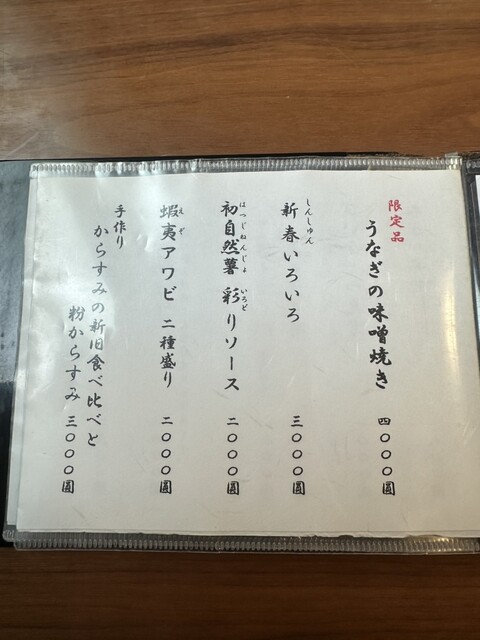 限定品
うなぎの味噌焼き 四〇〇〇圓
しんしゅん
新春いろいろ 三〇〇〇圓
はつじねんじょ いろど
初自然薯 彩りソース 二〇〇〇圓
えぞ
蝦夷アワビ 二種盛り 二〇〇〇圓
手作り
からすみの新旧食べ比べと
粉からすみ 三〇〇〇圓